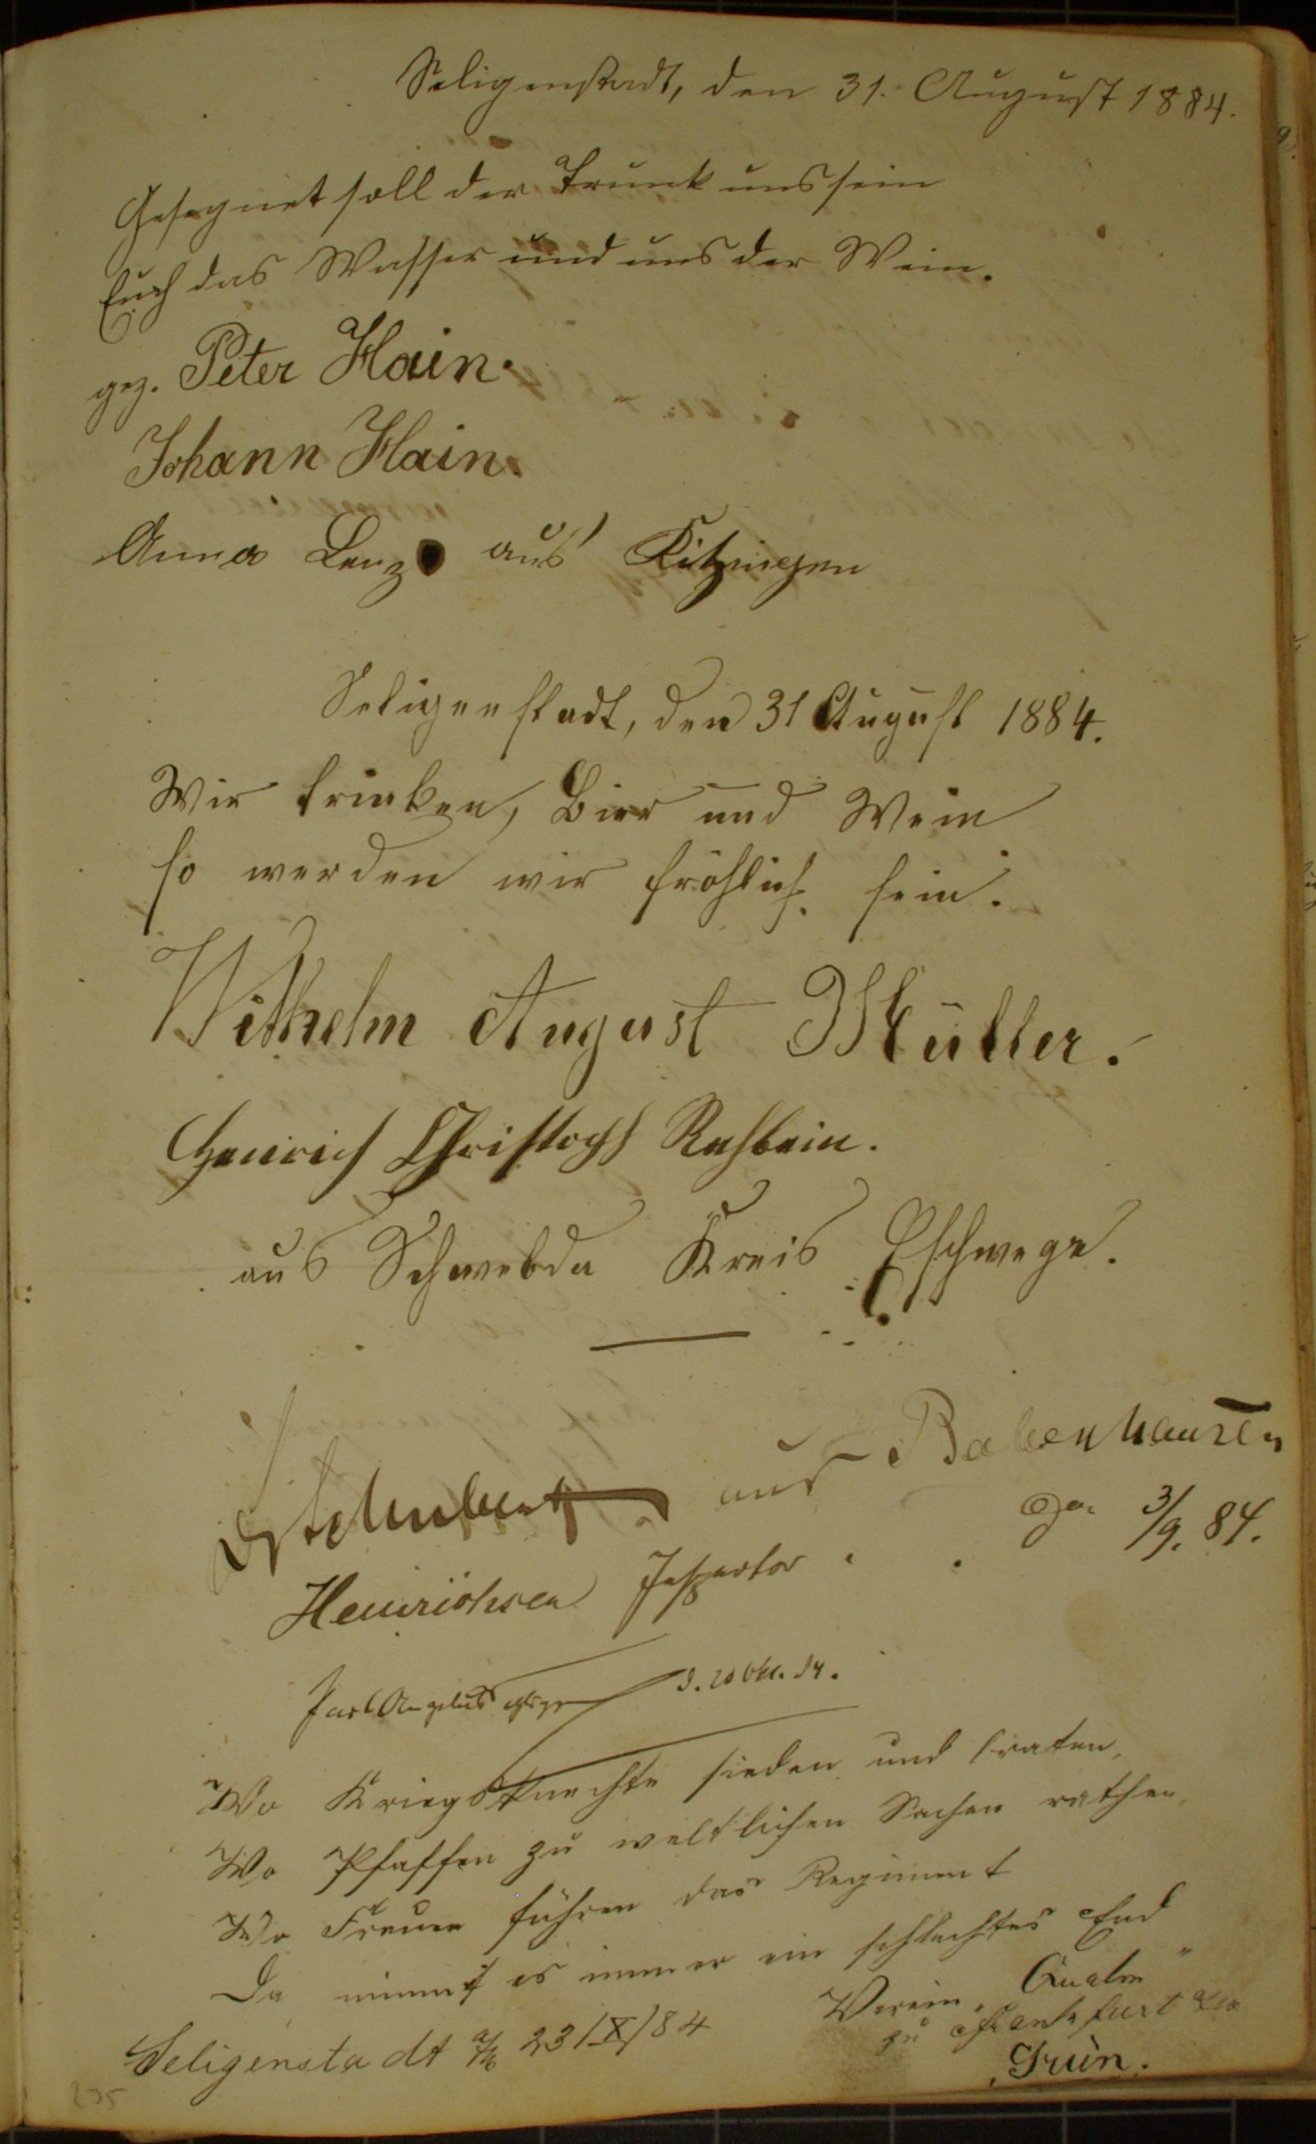 Seligenstadt, den 31. August 1884.
Gesegnet soll der Trunk uns sein
Euch das Wasser und uns der Wein.
gez. Peter Hain.
Johann Hain.
Anna Lenz aus Kitzingen
Seligenstadt, den 31 August 1884.
Wir trinken, Bier und Wein
so werden wir fröhlich sein.
Wilhelm August Müller.
Heinrich Christoph Rehbein.
aus Schwebda Kreis Eschwege.
Schubert aus Babenhausen
3/9. 84.
Heinrichsen Inspector
Wo Kriegsknechte sieden und braten,
Wo Pfaffen zu weltlichen Sachen rathen,
Wo Frauen führen das Regiment
Da nimmt es immer ein schlechtes End
Verein "Qualm"
zu Frankfurt a/M
Seligenstadt a/M 23/X/84
Grün.
235